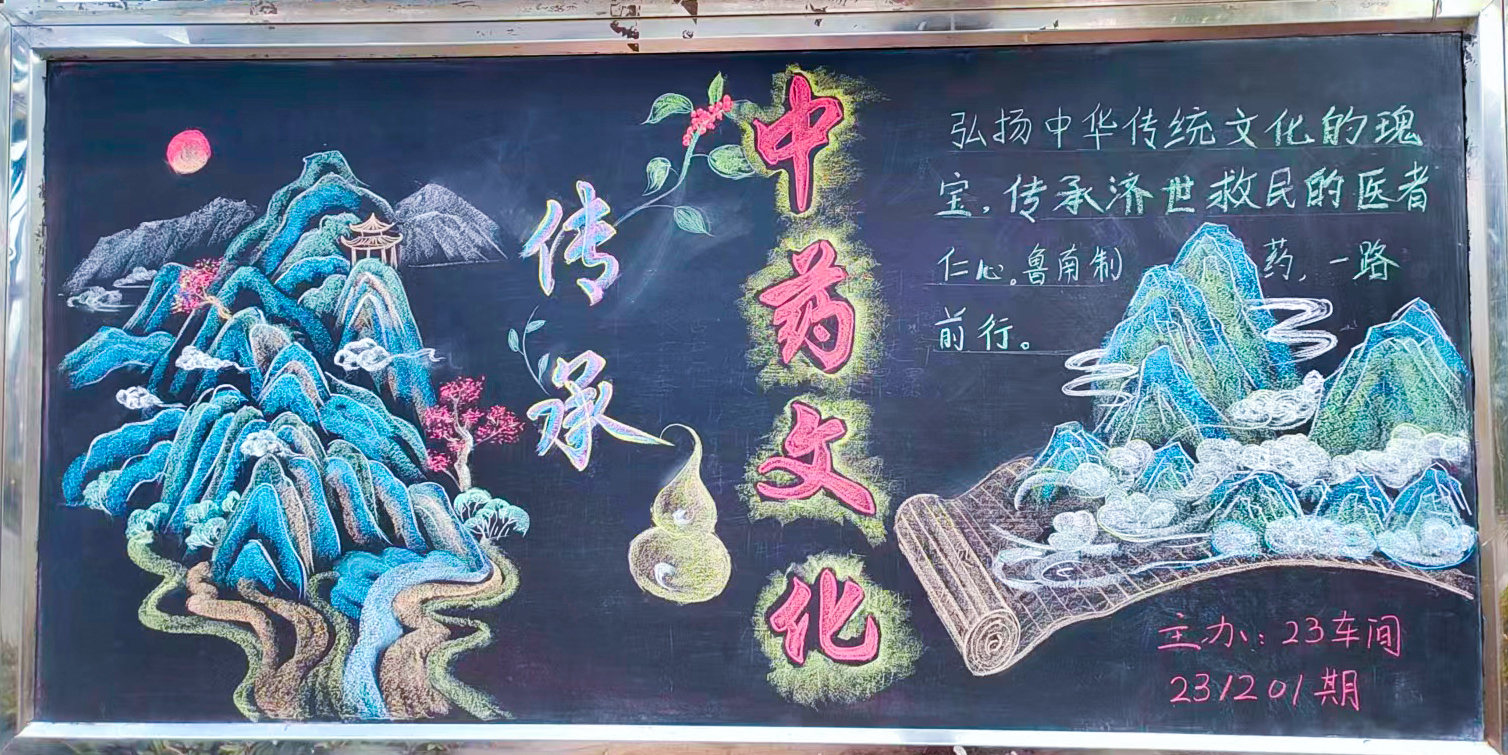 传承
中药文化
弘扬中华传统文化的瑰
宝,传承济世救民的医者
仁心。鲁南制药,一路
前行。
主办:23车间
231201期